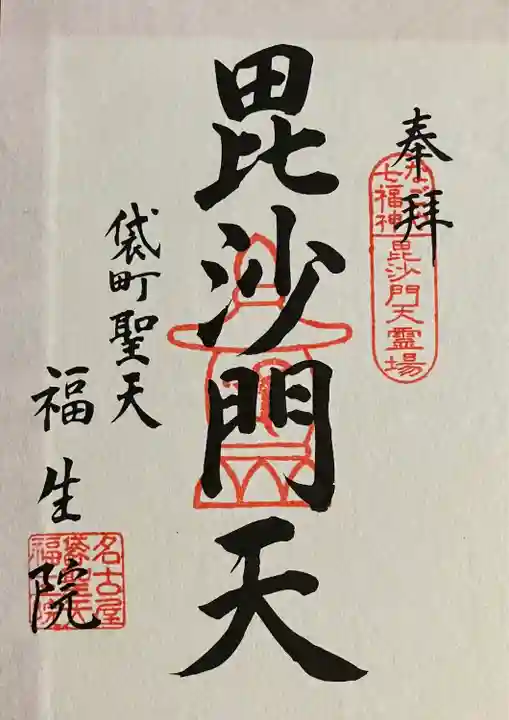 奉拝
なごや
七福神
毘沙門天霊場
毘沙門天
袋町聖天
福生院
名古屋
袋聖天
福生院